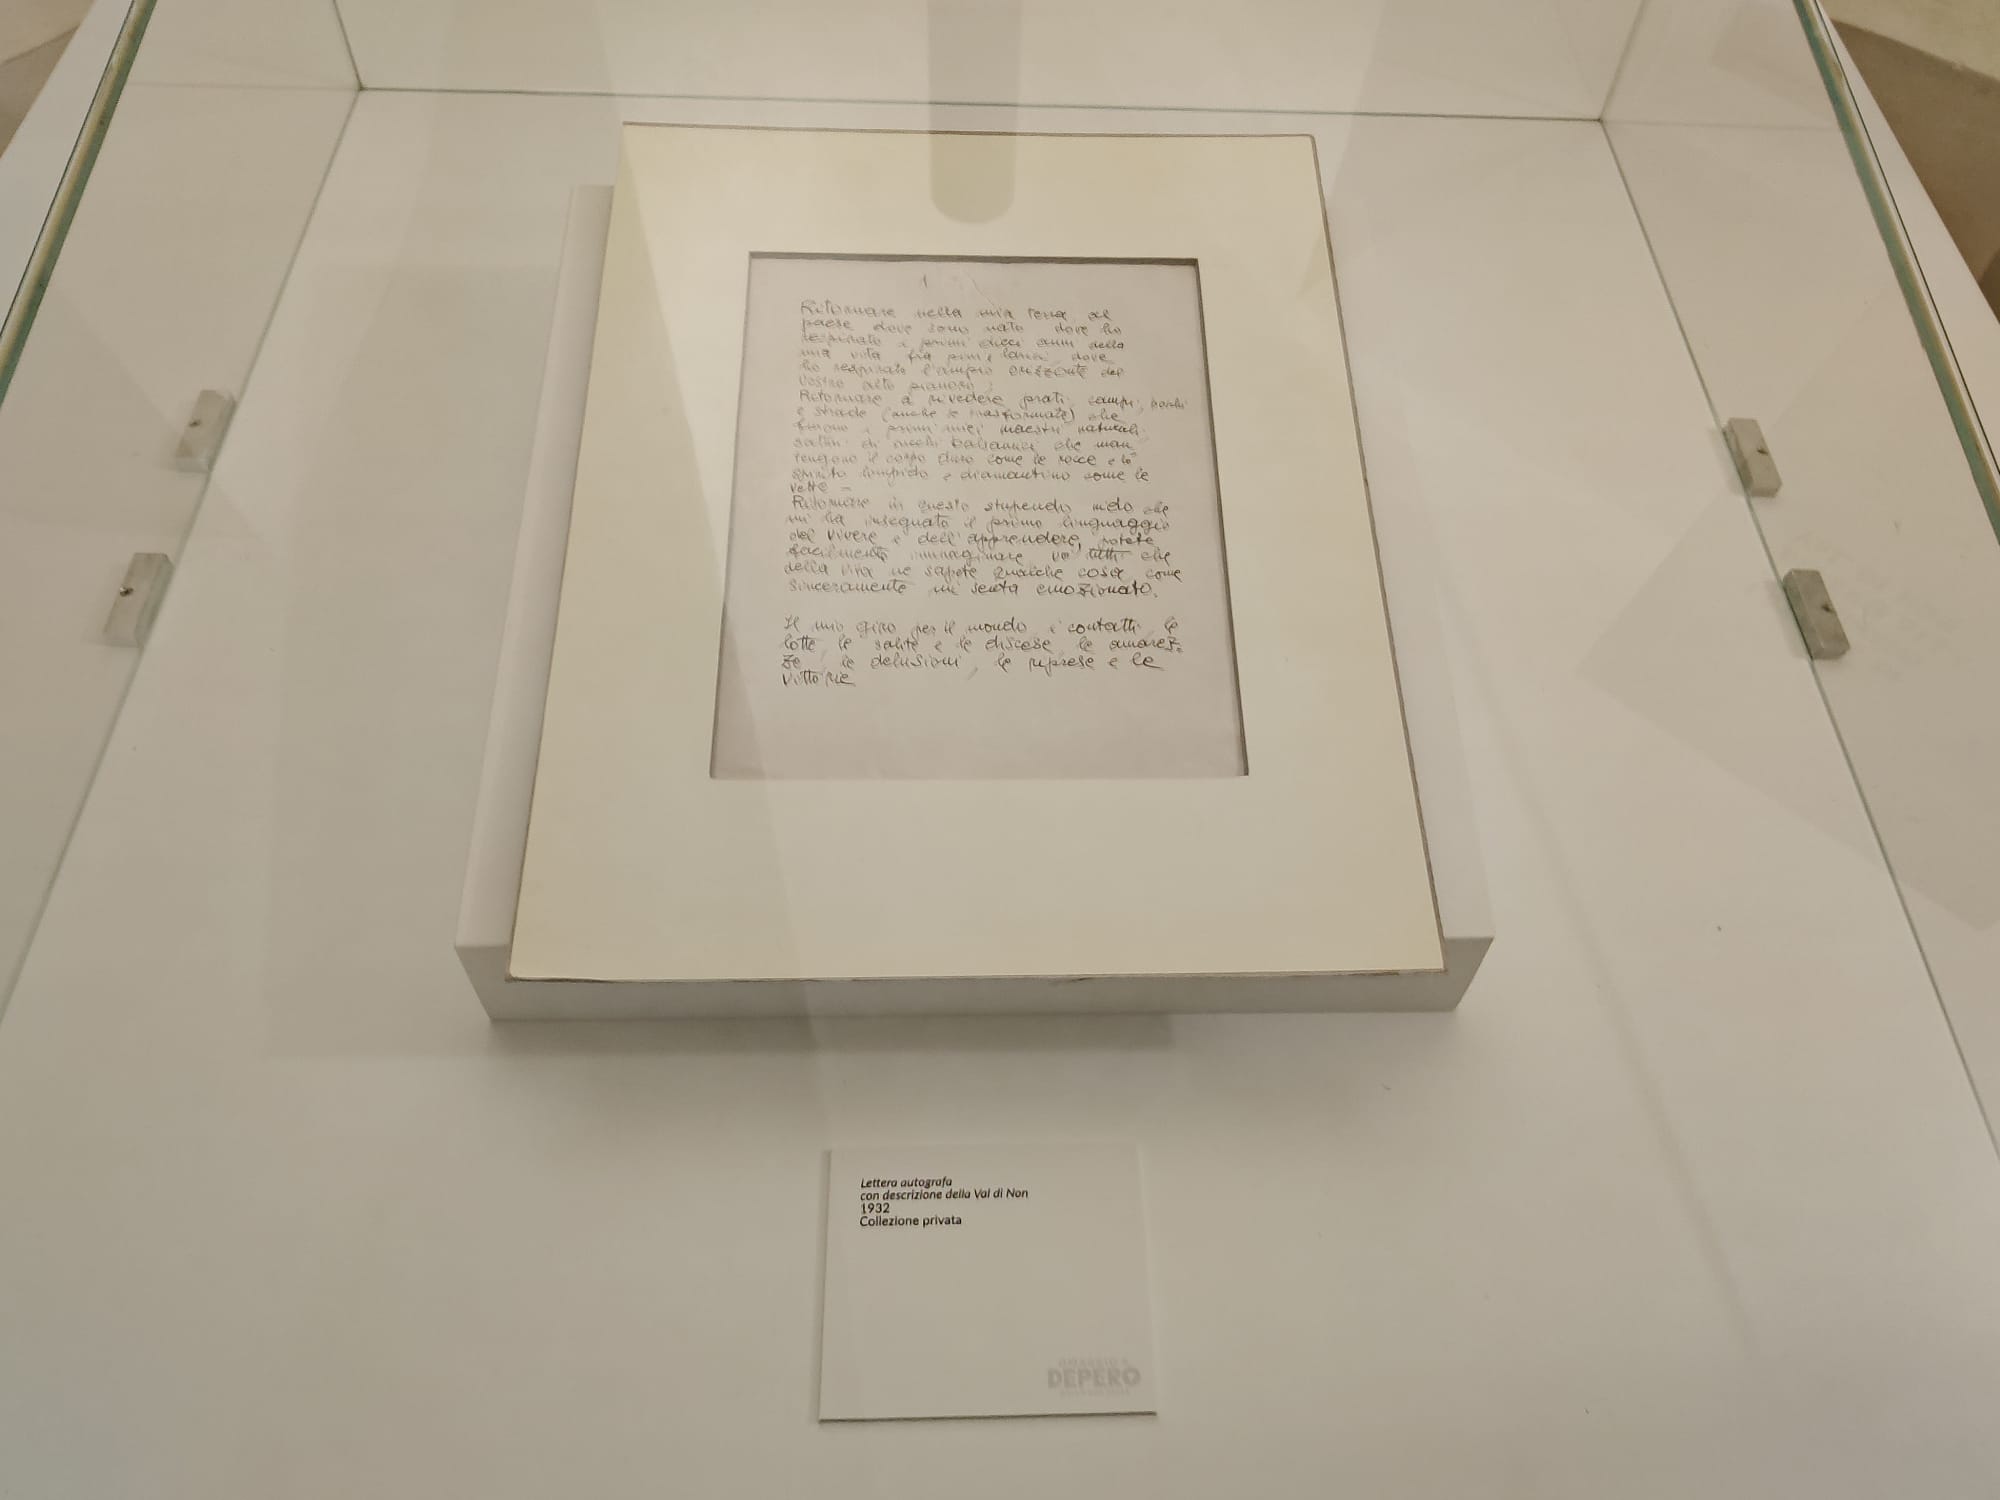 1
Ritornare nella mia terra, al
paese dove sono nato dove ho
respirato i primi dieci anni della
mia vita fra pini e larici, dove
ho respirato l'ampio orizzonte del
vostro alto pianoro;
Ritornare a rivedere prati, campi, boschi
e strade (anche se trasformate) che
furono i primi miei maestri naturali
saturi di succhi balsamici che man
tengono il corpo duro come le rocce e lo
spirito limpido e diamantino come le
vette —
Ritornare in questo stupendo nido che
mi ha insegnato il primo linguaggio
del vivere e dell'apprendere, potete
facilmente immaginare voi tutti che
della vita ne sapete qualche cosa, come
sinceramente mi senta emozionato.
Il mio giro per il mondo i contatti le
lotte, le salite e le discese, le amarez=
ze, le delusioni, le riprese e le
vittorie
Lettera autografa
con descrizione della Val di Non
1932
Collezione privata
OMAGGIO A
DEPERO